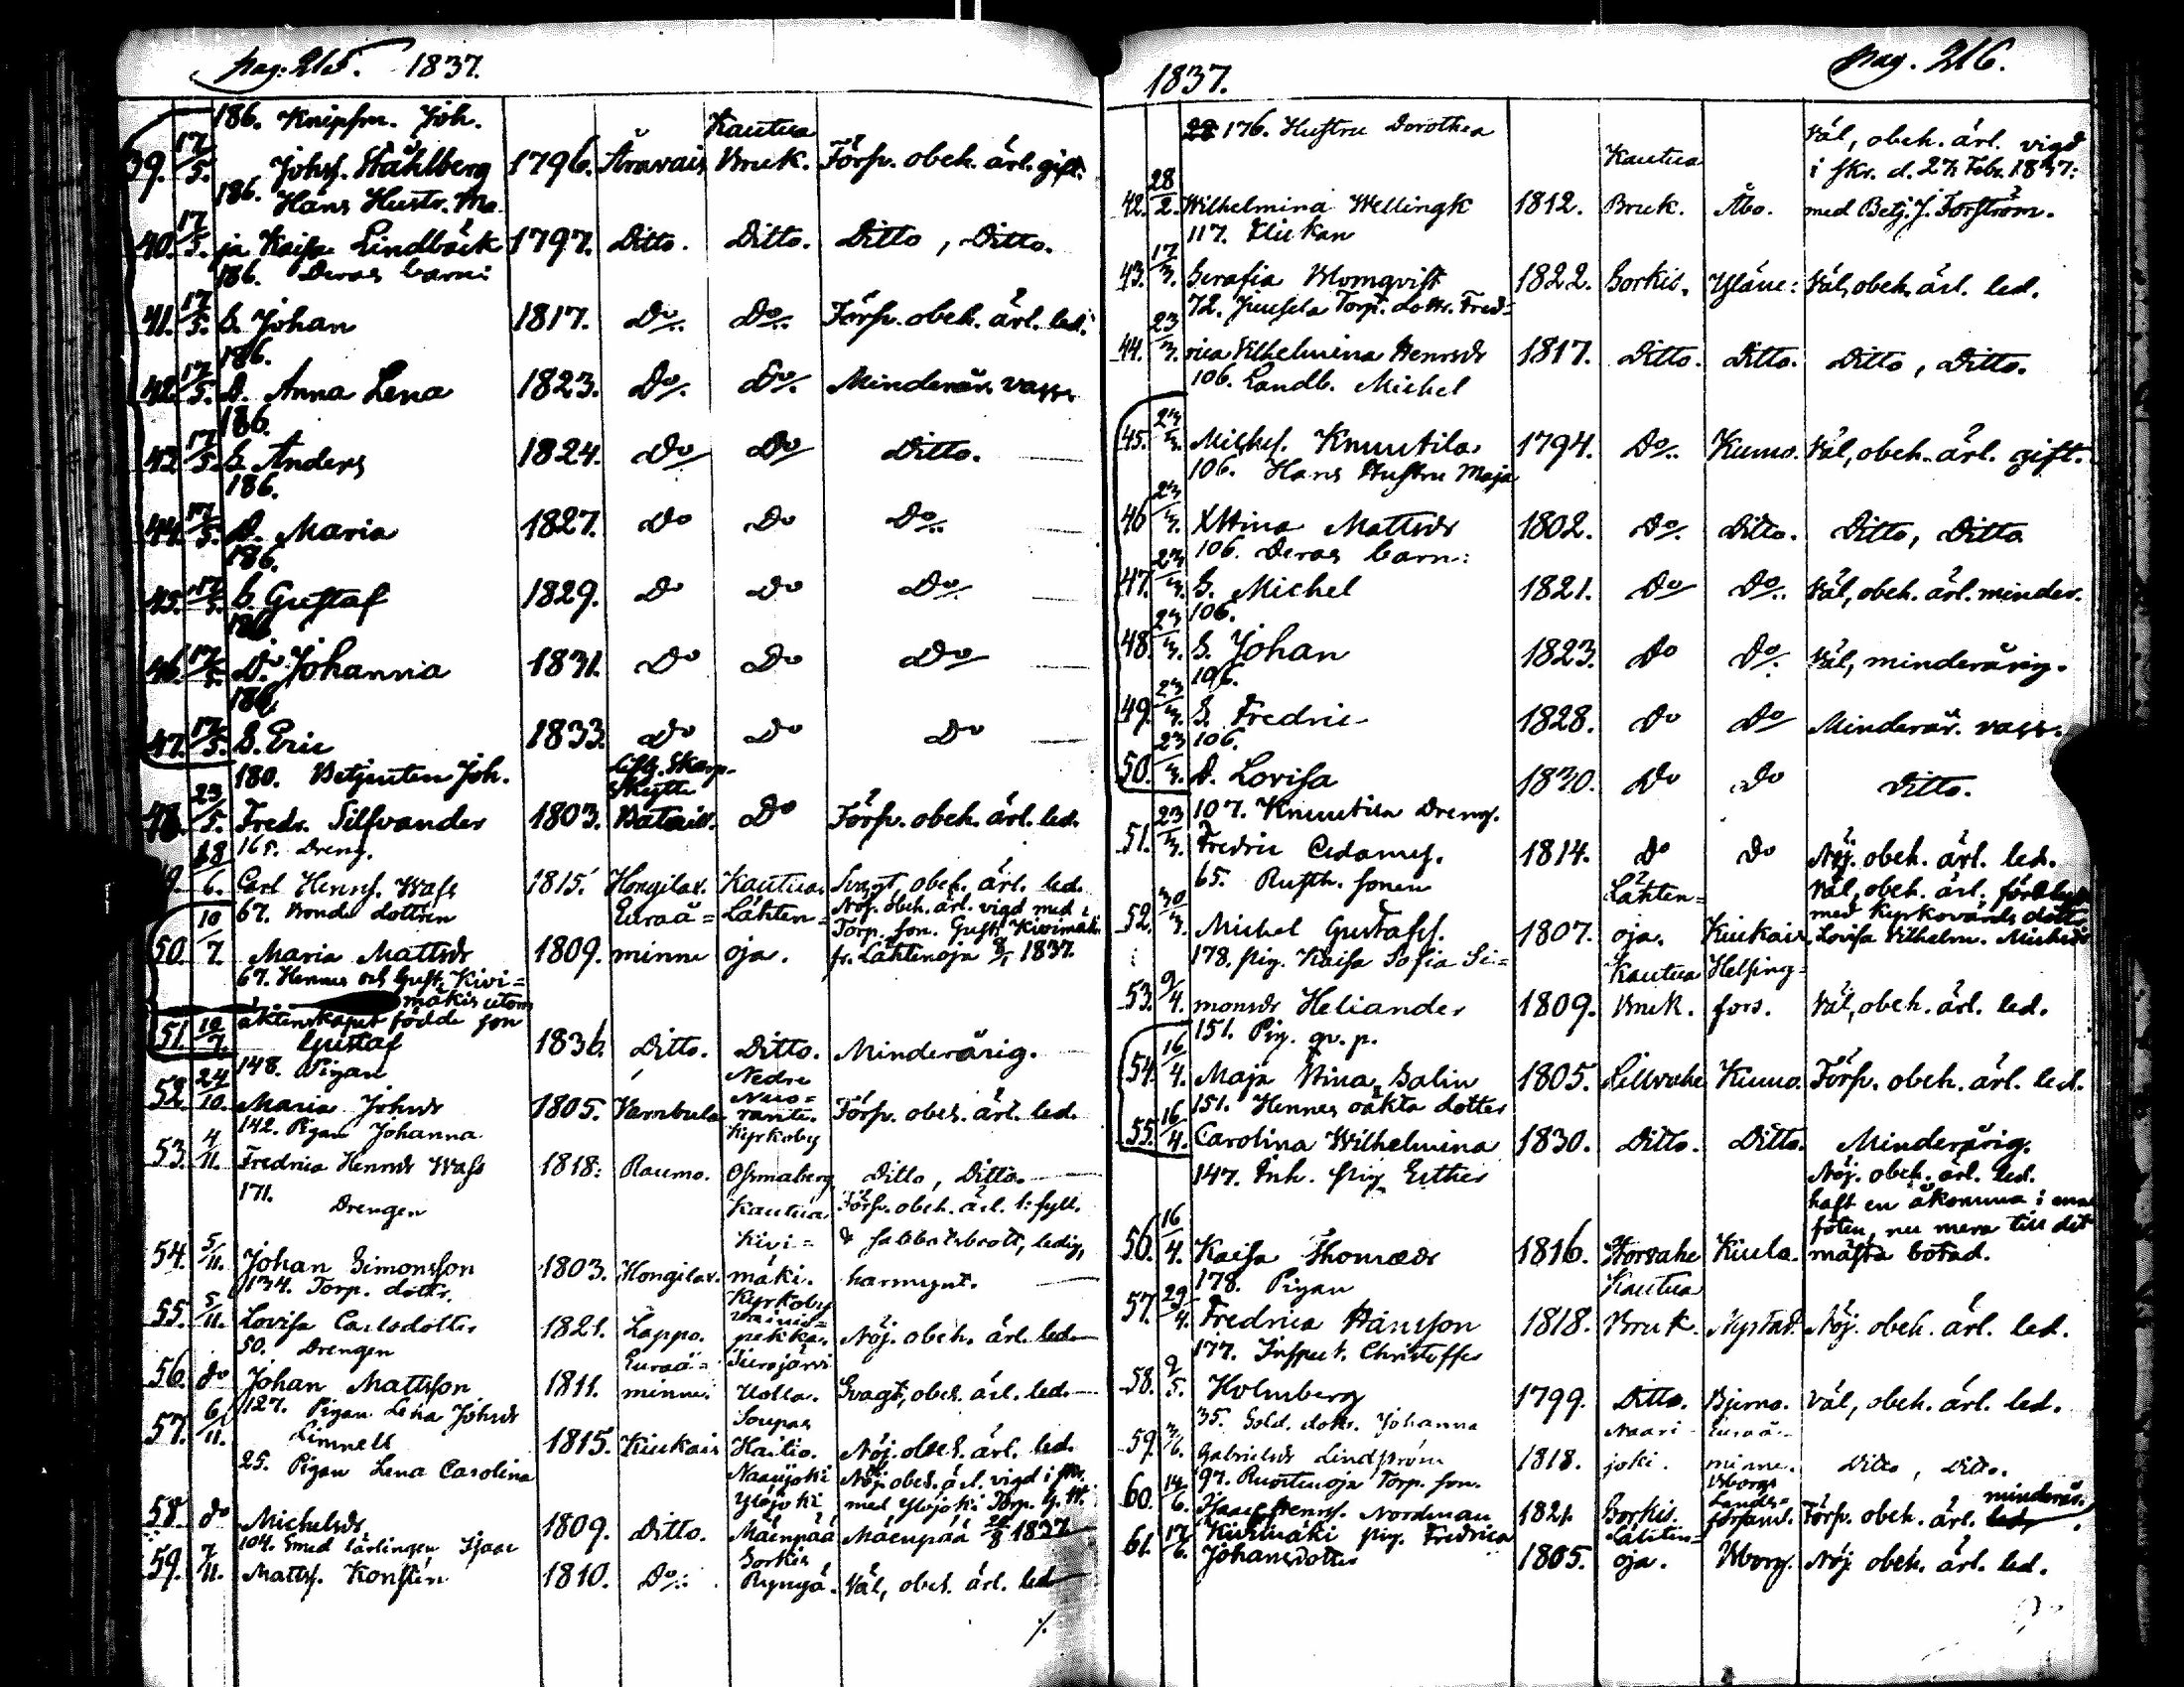 pag: 215. 1837.
186. Knipsm. Joh.
39. 17/5. Johsf. Ståhlberg 1796. Åravais Kautua Bruk. Förfv. obeh. ärl. gift.
186. Hans Hustr. Ma-
40. 17/5. ja Kaisa Lindbäck 1797. Ditto. Ditto. Ditto, Ditto.
186. Deras barn:
41. 17/5. S. Johan 1817. Do. Do. Förfv. obeh. ärl. led.
186.
42. 17/5. D. Anna Lena 1823. Do. Do. Minderår. vaxx.
186.
43. 17/5. S. Anders 1824. Do Do Ditto.
186.
44. 17/5. D. Maria 1827. Do Do Do.
186.
45. 17/5. S. Gustaf 1829. Do Do Do.
186.
46. 17/5. D. Johanna 1831. Do Do Do
186.
47. 17/5. S. Eric 1833. Do Do Do
180. Betjenten Joh.
48. 23/5. Fredr. Silfvander 1803. Skarp- Skytte Batail. Do Förfv. obeh. ärl. led.
165. Dreng.
49. 18/6. Carl Henrsf. Wass 1815. Hongilax. Kautua. Svagt, obeh. ärl. led.
67. Bonde dottren Euraå= Lähten= Nöj. obeh. ärl. vigd med
50. 10/7. Maria Mattsdr 1809. minne oja. Torp. son. Gust. Kivimäki fr. Lähtenoja 8/1 1837.
67. Hennes och Gust. Kivi=
mäkis utom
äktenskapet födde son
51. 10/7. Gustaf 1836. Ditto. Ditto. Minderårig.
148. Pigan Nedre
52. 24/10. Maria Johsdr 1805. Vambula Förfv. obeh. ärl. led.
142. Pigan Johanna Kyrkoby
53. 4/11. Fredrica Henrsdr Wass 1818. Raumo. Ditto, Ditto.
171. Drengen Kautua Förfv. obeh. ärl. f: fyll.
Kivi= & sabbatsbrott, ledig,
54. 5/11. Johan Simonsson 1803. Hongilax. mäki. harmynt.
134. Torp. dottr. Kyrkoby
55. 5/11. Lovisa Carlsdotter 1821. Lappo. Nöj. obeh. ärl. led.
50. Drengen Euraå= Turajärvi
56. do Johan Mattsson 1811. minne. Uotla. Svagt, obeh. ärl. led.
127. Pigan Lena Johsdr
57. 6/11. Limnell 1815. Kiukais Hailio. Nöj. obeh. ärl. led.
25. Pigan Lena Carolina Naarijoki Nöj. obeh. ärl. vigd i
Ylöjoki med Ylöjoki Torp.
58. do Michelsdr 1809. Ditto. Mäenpää Mäenpää 1837
104. Smed lärlingen Isaac Sorkis
59. 7/11. Mattsf. Konstén 1810. Do. Väl, obeh. ärl. led
1837. pag. 216.
176. Hustru Dorothea Kautua Väl, obeh. ärl. vigd
i fkr. d. 27 Febr. 1837:
42. 28/2. Wilhelmina Wellingk 1812. Bruk. Åbo. med Betj. J. Forström.
117. Flickan
43. 17/3. Serafia Blomqvist 1822. Sorkis. Yläne: Väl, obeh. ärl. led.
72. Juusela Torp. dottr. Fred-
44. 23/3. rica Vilhelmina Henrsdr 1817. Ditto. Ditto. Ditto, Ditto.
106. Landb. Michel
45. 23/3. Michsf. Knuutila 1794. Do. Kumo. Väl, obeh. ärl. gift.
106. Hans Hustru Maja
46 23/3. Stina Mattsdr 1802. Do. Ditto. Ditto, Ditto
106. Deras barn:
47. 23/3. S. Michel 1821. Do Do. Väl, obeh. ärl. minder.
106.
48. 23/3. S. Johan 1823. Do Do. Väl, minderårig.
106.
49. 23/3. S. Fredric 1828. Do Do Minderår. vaxx.
106.
50. 23/3. D. Lovisa 1830. Do Do Ditto.
107. Knuutila Dreng.
51. 23/3. Fredric Adamsf. 1814. Do Do Nöj. obeh. ärl. led.
65. Rusth. sonen Lähten= Väl, obeh. ärl.
med Kyrkovärds dottr
52. 30/3. Michel Gustafsf. 1807. oja. Kiukais Lovisa Vilhelm. Michsdr
178. pig. Kaisa Sofia Si= Kautua Helsing=
53. 9/4. monsdr Heliander 1809. Bruk. fors. Väl, obeh. ärl. led.
151. Pig. qv. p.
54. 16/4. Maja Stina Salin 1805. Lillvahe Kumo. Förfv. obeh. ärl. led.
151. Hennes oäkta dotter
55. 16/4. Carolina Wilhelmina 1830. Ditto. Ditto. Minderårig.
147. Inh. pig. Esther Nöj. obeh. ärl. led.
haft en åkomma i ena
foten, nu mera till det
56. 16/4. Kaisa Thomædr 1816. Storvahe Kiula. mästa botad.
178. Pigan Kautua
57. 29/4. Fredrica Hansson 1818. Bruk. Nystad. Nöj. obeh. ärl. led.
177. Inspect. Christoffer
58. 9/5. Holmberg 1799. Ditto. Bjerno. Väl, obeh. ärl. led.
35. Sold. dottr. Johanna Naari- Euraå-
59. 3/6. Gabrielsdr Lindström 1818. joki. minne. Ditto, Ditto.
97. Ruotinoja Torp. son. Wborgs Lands= minderår.
60. 14/6. Isaac Henrsf. Nordman 1821. Sorkis. församl. Förfv. obeh. ärl. led.
Kivimäki pig. Fredrica Lähten=
61. 17/6. Johansdotter 1805. oja. Wborg. Nöj. obeh. ärl. led.